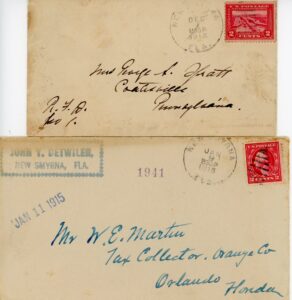 DEC
FLA.
U.S. POSTAGE
2 CENTS 2
Mrs George S. Pratt
Coatesville
Pennsylvania.
R.F.D.
No 1.
JOHN Y. DETWILER,
NEW SMYRNA, FLA.
JAN 11 1915
1941
NEW SMYRNA
JAN
9
1915
FLA.
2 CENTS 2
Mr W. E. Martin
Tax Collector. Orange Co
Orlando
Florida